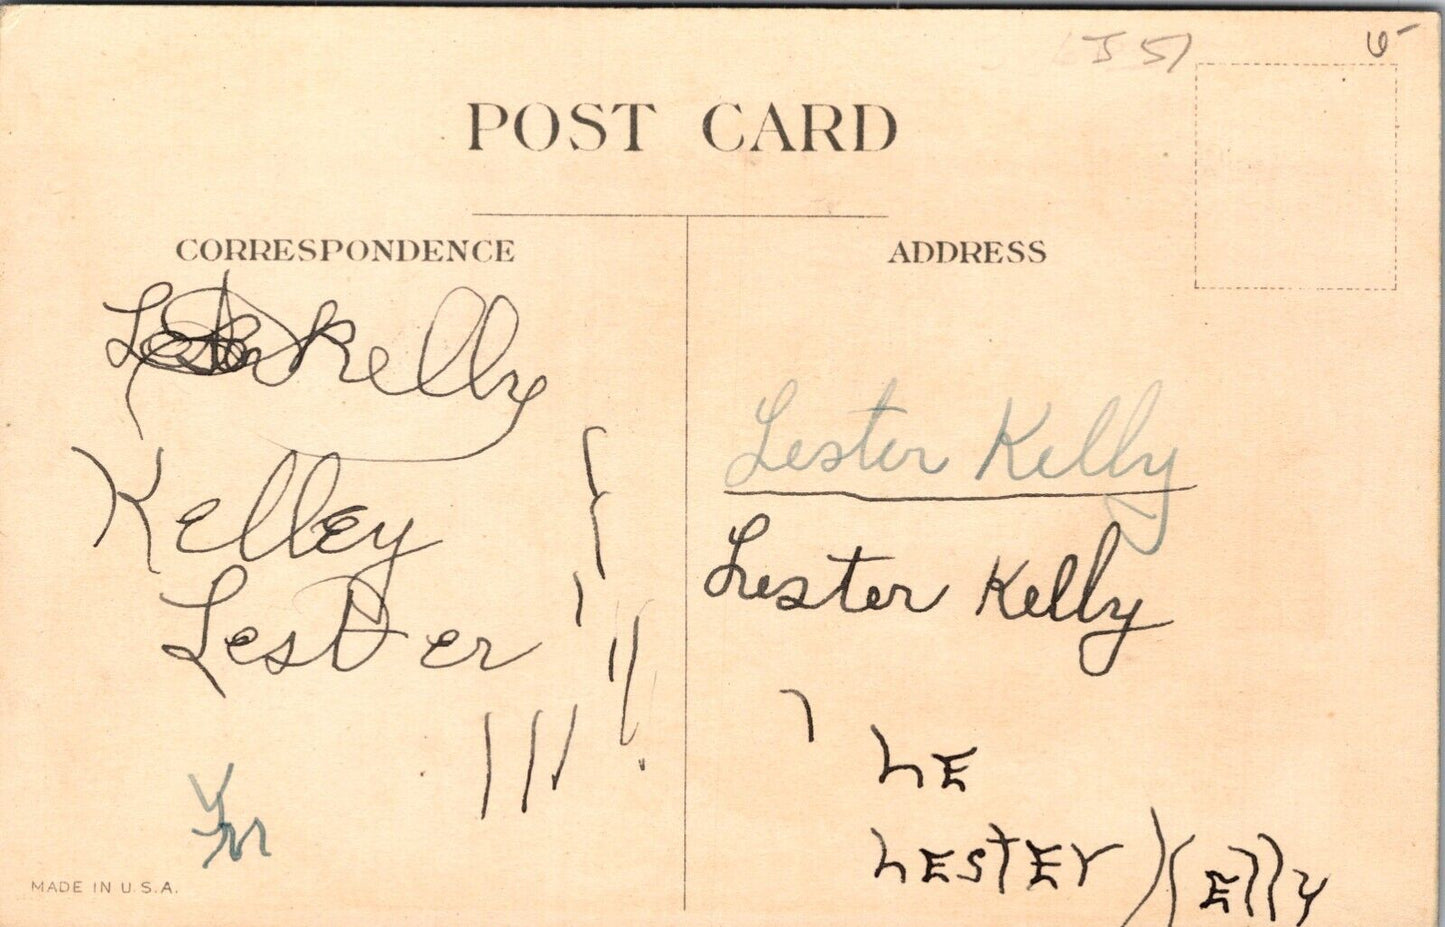 51
POST CARD
CORRESPONDENCE
ADDRESS
Kelly
Kelley
Lester
Lester Kelly
Lester Kelly
LE
LESTER Kelly
MADE IN U.S.A.